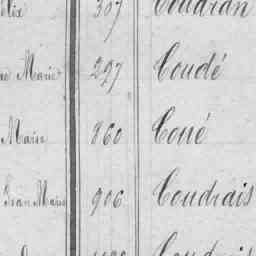 307 Coudran
Marie 297 Coudé
Marie 860 Coué
Jean Marie 906 Coudrais